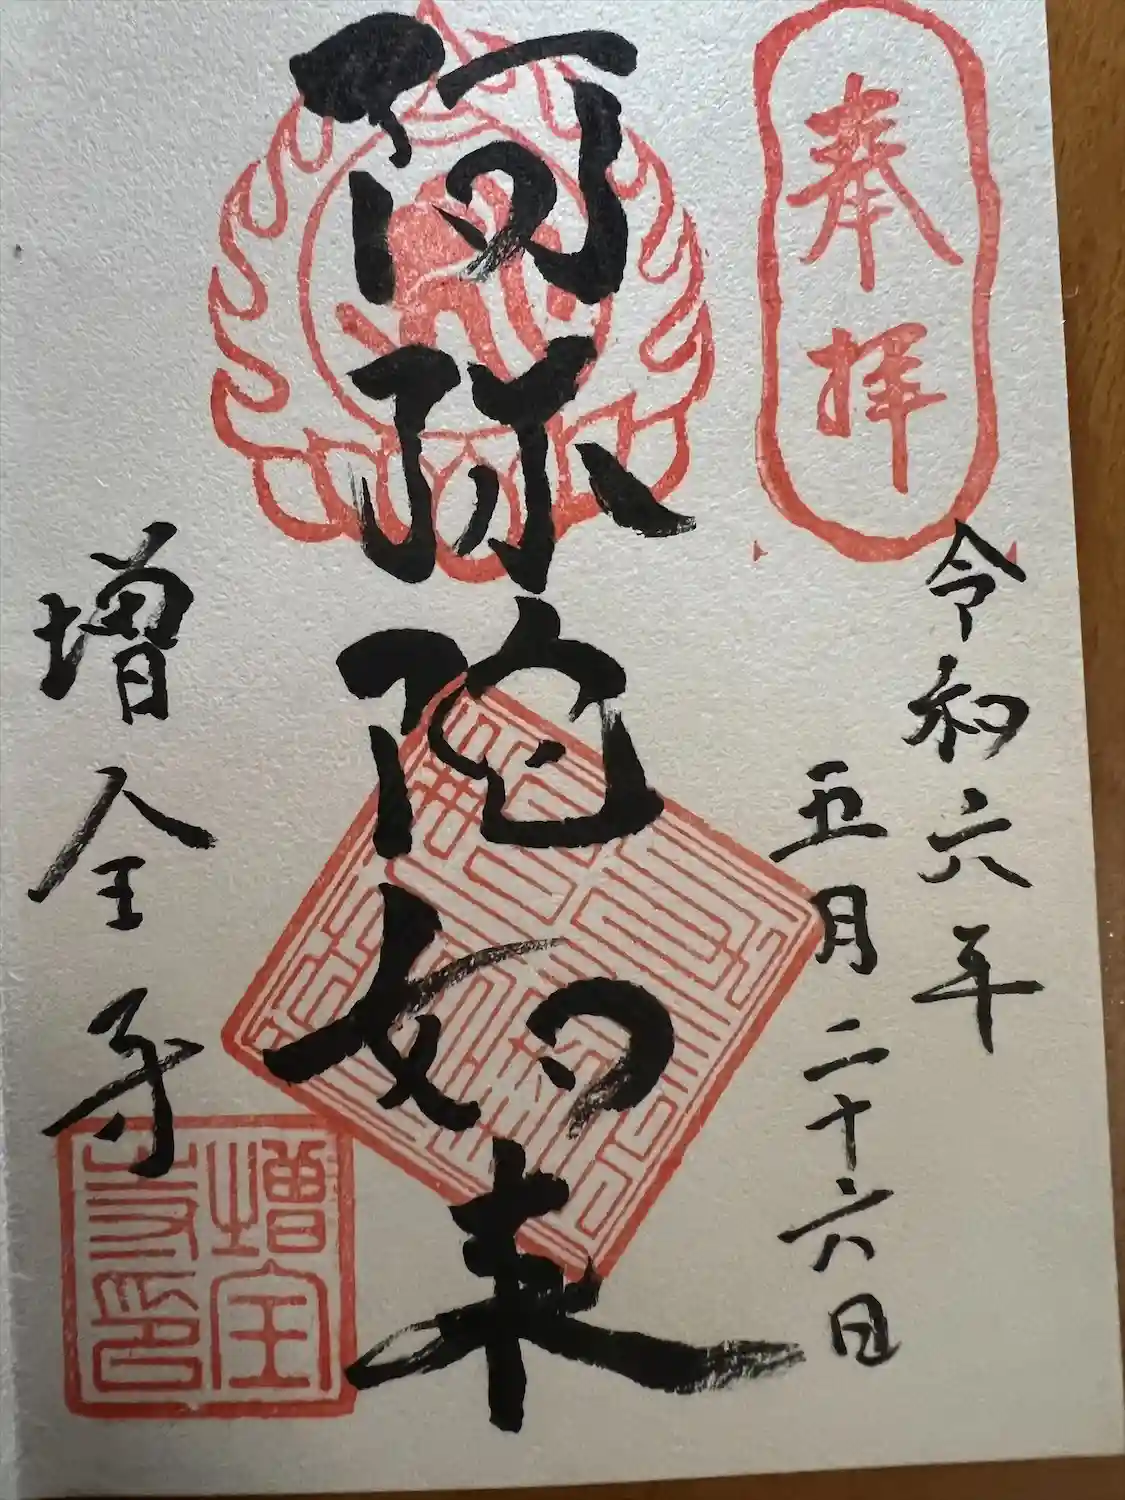 奉拝
令和六年
五月二十六日
阿弥陀如来
増全寺
増全
寺印